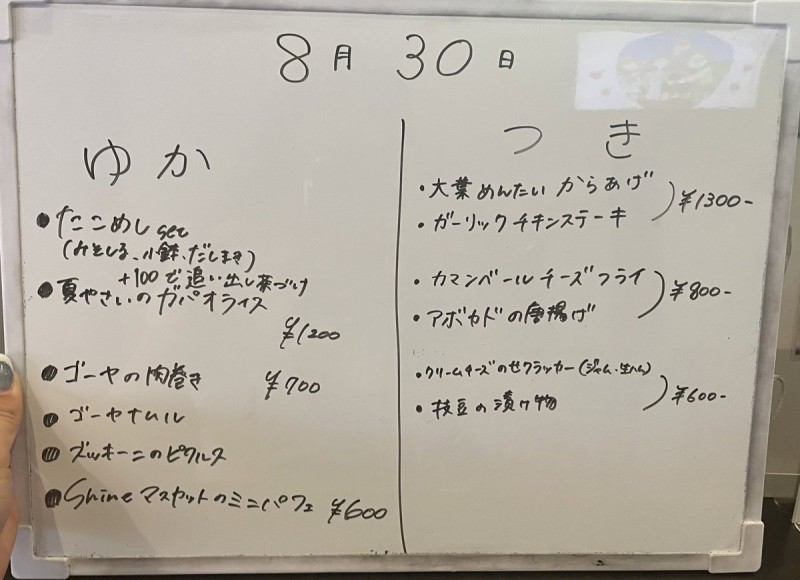 8月 30日
ゆか
●たこめし set
(みそしる、小鉢、だしまき)
+100で追い出し茶づけ
●夏やさいのガパオライス
¥1200
●ゴーヤの肉巻き ¥700
●ゴーヤナムル
●ズッキーニのピクルス
●Shineマスカットのミニパフェ ¥600
つき
・大葉めんたいからあげ
・ガーリックチキンステーキ
¥1300-
・カマンベールチーズフライ
・アボカドの唐揚げ
¥800-
・クリームチーズのせクラッカー(ジャム・生ハム)
・枝豆の漬け物
¥600-